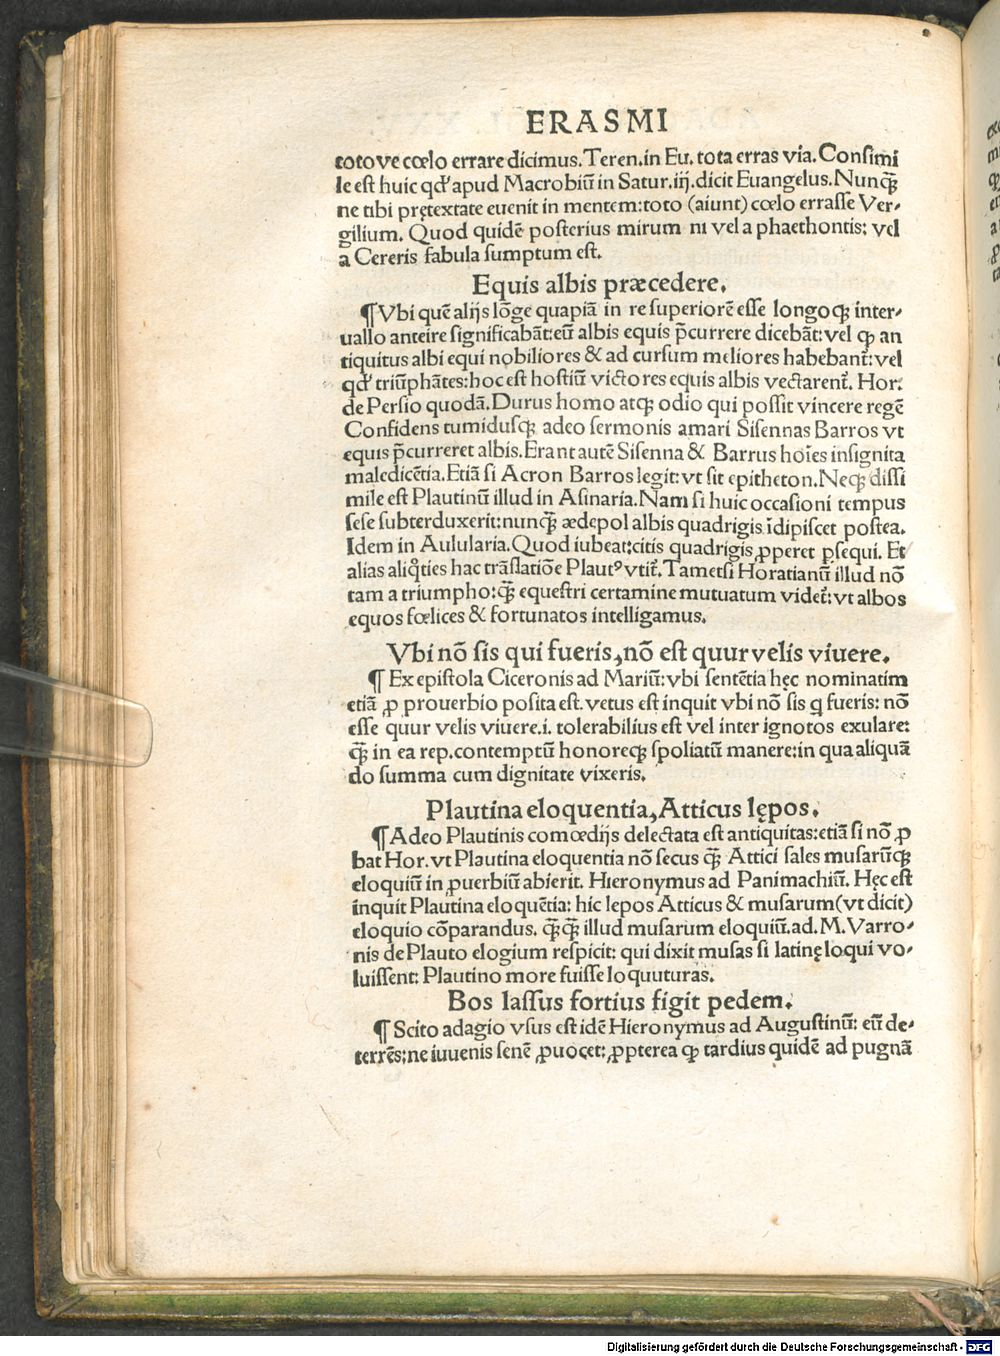 ERASMI
totove cœlo errare dicimus. Teren. in Eu. tota erras via. Consimi
le est huic qđ apud Macrobiū in Satur. iij. dicit Euangelus. Nunq̄
ne tibi prętextate euenit in mentem: toto (aiunt) cœlo errasse Ver-
gilium. Quod quidē posterius mirum ni vel a phaethontis: vel
a Cereris fabula sumptum est.
Equis albis præcedere.
¶ Vbi quē alijs lōge quapiā in re superiorē esse longoqꝫ inter-
uallo anteire significabāt: eū albis equis p̄currere dicebāt: vel ꝙ an
tiquitus albi equi nobiliores & ad cursum meliores habebant̃: vel
qđ triūphātes: hoc est hostiū victores equis albis vectarent̃. Hor.
de Persio quodā. Durus homo atqꝫ odio qui possit vincere regē
Confidens tumidusqꝫ adeo sermonis amari Sisennas Barros vt
equis p̄curreret albis. Erant autē Sisenna & Barrus hoīes insignita
maledicētia. Etiā si Acron Barros legit: vt sit epitheton. Neqꝫ dissi
mile est Plautinū illud in Asinaria. Nam si huic occasioni tempus
sese subterduxerit: nunq̄ ædepol albis quadrigis īdipiscet postea.
Idem in Aulularia. Quod iubeat: citis quadrigis ꝓperet ꝑsequi. Et
alias aliq̊ties hac trāslatiōe Plautꝰ vtit̃. Tametsi Horatianū illud nō
tam a triumpho: q̄ equestri certamine mutuatum videt̃: vt albos
equos fœlices & fortunatos intelligamus.
Vbi nō sis qui fueris, nō est quur velis viuere.
¶ Ex epistola Ciceronis ad Mariū: vbi sentētia hęc nominatim
etiā ꝓ prouerbio posita est. vetus est inquit vbi nō sis q fueris: nō
esse quur velis viuere. i. tolerabilius est vel inter ignotos exulare:
q̄ in ea rep. contemptū honoreqꝫ spoliatū manere: in qua aliquā
do summa cum dignitate vixeris.
Plautina eloquentia, Atticus lępos.
¶ Adeo Plautinis comœdijs delectata est antiquitas: etiā si nō ꝓ
bat Hor. vt Plautina eloquentia nō secus q̄ Attici sales musarūqꝫ
eloquiū in ꝓuerbiū abierit. Hieronymus ad Panimachiū. Hęc est
inquit Plautina eloquētia: hic lepos Atticus & musarum (vt dicit)
eloquio cōparandus. q̄q̄ illud musarum eloquiū. ad. M. Varro-
nis de Plauto elogium respicit: qui dixit musas si latinę loqui vo-
luissent: Plautino more fuisse loquuturas.
Bos lassus fortius figit pedem.
¶ Scito adagio vsus est idē Hieronymus ad Augustinū: eū de-
terrēs: ne iuuenis senē ꝓuocet: ꝓpterea ꝙ tardius quidē ad pugnā
Digitalisierung gefördert durch die Deutsche Forschungsgemeinschaft - DFG